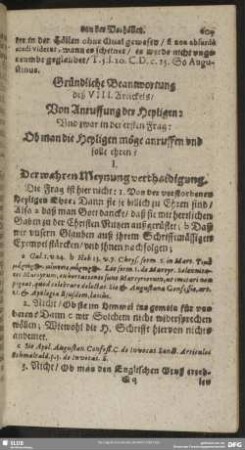 von der Vorhöllen. 609
der in der Höllen ohne Qual gewesen / & non absurdè
credi videtur, wann es scheinet / es werde nicht unge-
reumbt geglaubet / T. 5. l. 20. C. D. c. 15. So Augu-
stinus.
Gründliche Beantwortung
deß VIII. Articels /
Von Anruffung der Heyligen:
Und zwar in der ersten Frag:
Ob man die Heyligen möge anruffen und
solle ehren /
I.
Der wahren Meynung verthaidigung.
Die Frag ist hier nicht: 1. Von der verstorbenen
Heyligen Ehre: Dann sie je billich zu Ehren sind /
Also a daß man Gott dancke / daß sie mit herrlichen
Gaben zu der Christen Nutzen außgerüstet: b Daß
wir unsern Glauben auß ihrem Schrifftmässigen
Exempel stärcken / und ihnen nachfolgen;
a Gal. 1. v. 24. b Heb. 13. v. 7. Chrys. serm. 1. in Mart.
2. Nicht / Ob sie im Himmel ins gemein für uns
baten? Dann c wir Solchem nicht widersprechen
wöllen; Wiewohl die H. Schrifft hiervon nichts
andeutet.
c Sic Apol. Augustan. Confess. C. de invocat. Sanct. Articulus
Schmalcald. p. 3. de invocat. S.
3. Nicht / Ob man den Englischen Gruß erzeh-
len